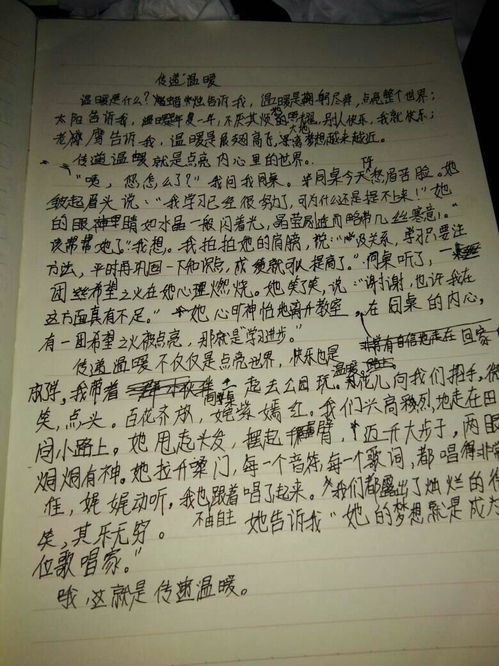 传递温暖
温暖是什么?蜡烛告诉我,温暖是鞠躬尽瘁,点亮整个世界;
太阳告诉我,温暖是年复一年,不厌其烦的照耀,别人快乐,我就快乐;
老鹰告诉我,温暖是展翅高飞,离梦想越来越近。
传递温暖就是点亮内心里的世界。
"咦,您怎么了?"我问我同桌。同桌今天愁眉苦脸。她
皱起眉头说:"我学习已经很努力了,可为什么还是提不上来!"她
的眼神里晴如水晶一般闪着光,晶莹剔透而略带几丝寒意!"
该帮帮她了"我想。我拍拍她的肩膀,说:"没关系,学习只要注
方法,平时再巩固一下知识点,成绩就可以提高了。"同桌听了,一
团希望之火在她心理燃烧。她笑了笑,说:"谢谢,也许我在
这方面真有不足。"她心旷神怡地离开教室。在同桌的内心,
有一团希望之火被点亮,那就是"学习进步"。
非常有自信地走在回家
传递温暖不仅仅是点亮世界,快乐也是温暖
我带着同桌一起去公园玩,花儿向我们招手,微
笑,点头。百花齐放,姹紫嫣红。我们兴高彩烈地走在田
间小路上。她甩起头发,摆起手臂,迈开大步子,两眼
炯炯有神。她拉开嗓门,每一个音符,每一个歌词,都唱得非常
佳,娓娓动听。我也跟着唱了起来。我们都露出了灿烂的微
笑,其乐无穷。她告诉我"她的梦想就是成为
位歌唱家。"
哦,这就是传递温暖。